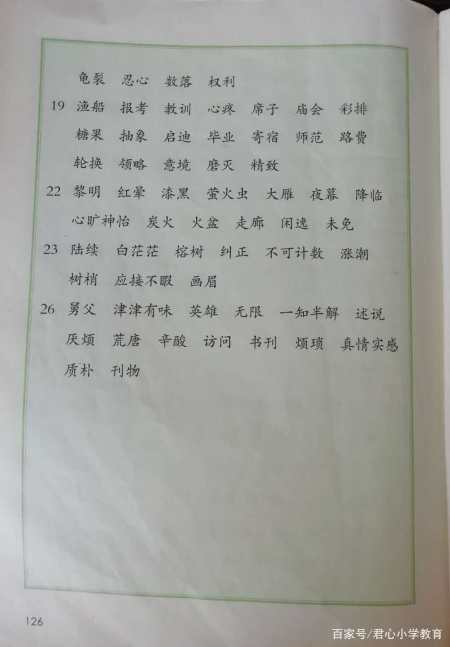 龟裂 忍心 数落 权利
19 渔船 报考 教训 心疼 席子 庙会 彩排
糖果 抽象 启迪 毕业 寄宿 师范 路费
轮换 领略 意境 磨灭 精致
22 黎明 红晕 漆黑 萤火虫 大雁 夜幕 降临
心旷神怡 炭火 火盆 走廊 闲逸 未免
23 陆续 白茫茫 榕树 纠正 不可计数 涨潮
树梢 应接不暇 画眉
26 舅父 津津有味 英雄 无限 一知半解 述说
厌烦 荒唐 辛酸 访问 书刊 烦琐 真情实感
质朴 刊物
126
百家号/君心小学教育